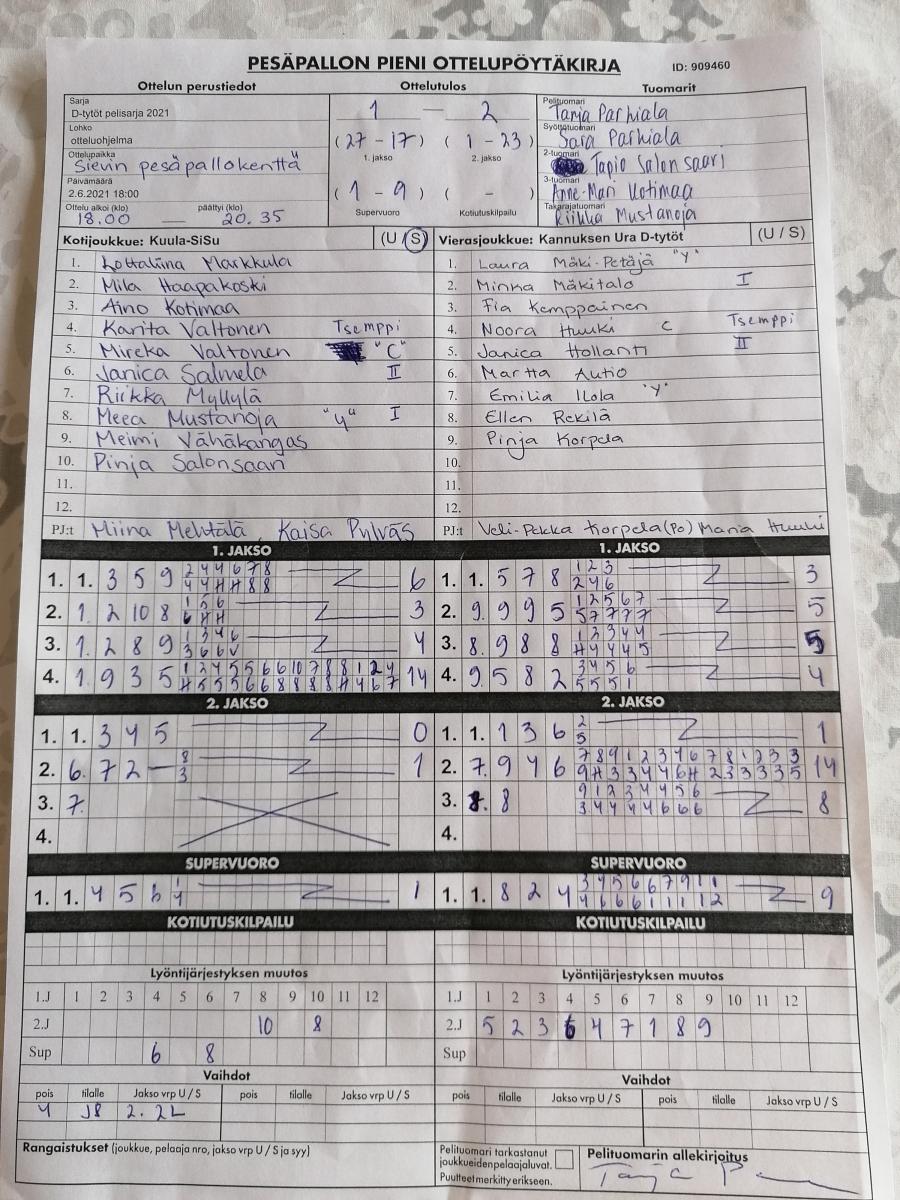 PESÄPALLON PIENI OTTELUPÖYTÄKIRJA ID: 909460
Ottelun perustiedot Ottelutulos Tuomarit
Sarja
D-tytöt pelisarja 2021
Lohko
otteluohjelma
Ottelupaikka
Sievin pesäpallokenttä
Päivämäärä
2.6.2021 18:00
Ottelu alkoi (klo) päättyi (klo)
18.00 — 20.35
1 — 2
(27 - 17) (1 - 23)
1. jakso 2. jakso
(1 - 9) ( - )
Supervuoro Kotiutuskilpailu
Pelituomari
Tanja Parhiala
Syöttötuomari
Sara Parhiala
2-tuomari
Tapio Salonsaari
3-tuomari
Anne-Mari Kotimaa
Takarajatuomari
Riikka Mustanoja
Kotijoukkue: Kuula-SiSu (U / S)
1. Lottaliina Markkula
2. Mila Haapakoski
3. Aino Kotimaa
4. Karita Valtonen Tsemppi
5. Mireka Valtonen "C"
6. Janica Salmela II
7. Riikka Myllylä
8. Meea Mustanoja "Y" I
9. Meimi Vähäkangas
10. Pinja Salonsaari
11.
12.
PJ:t Miina Mehtälä, Kaisa Pylväs
Vierasjoukkue: Kannuksen Ura D-tytöt (U / S)
1. Laura Mäki-Petäjä "Y"
2. Minka Mäkitalo I
3. Fia Kemppainen
4. Noora Huuki C Tsemppi
5. Janica Hollanti II
6. Martta Autio
7. Emilia Ilola "Y"
8. Ellen Rekilä
9. Pinja Korpela
10.
11.
12.
PJ:t Veli-Pekka Korpela (Po) Maria Huuki
1. JAKSO
1. 1. 3 5 9 2 4 4 6 7 8 6
4 4 H H 8 8
2. 1. 2 10 8 1 5 6 3
6 H H
3. 1. 2 8 9 1 3 4 6 4
3 6 6 V
4. 1. 9 3 5 1 2 4 5 5 6 6 10 7 8 8 1 2 4 14
H 5 5 5 6 6 8 8 8 8 H 4 6 7
1. JAKSO
1. 1. 5 7 8 1 2 3 3
2 4 6
2. 9. 9 9 5 1 2 5 6 7 5
5 7 7 7 7
3. 8. 9 8 8 1 2 3 4 4 5
H 4 4 4 5
4. 9. 5 8 2 3 4 5 6 4
5 5 5 1
2. JAKSO
1. 1. 3 4 5 0
2. 6. 7 2 — 8 1
3
3. 7.
4.
2. JAKSO
1. 1. 1 3 6 2 1
5
2. 7. 9 4 6 7 8 9 1 2 3 4 6 7 8 1 2 3 3 14
9 H 3 3 4 4 6 H 2 3 3 3 3 5
3. 8. 8 9 1 2 3 4 4 5 6 8
3 4 4 4 4 6 6 6
4.
SUPERVUORO
1. 1. 4 5 6 1 1
4
SUPERVUORO
1. 1. 8 2 4 3 4 5 6 6 7 9 1 1 9
4 6 6 6 1 1 1 1 2
KOTIUTUSKILPAILU
KOTIUTUSKILPAILU
Lyöntijärjestyksen muutos
1.J 1 2 3 4 5 6 7 8 9 10 11 12
2.J 10 8
Sup 6 8
Lyöntijärjestyksen muutos
1.J 1 2 3 4 5 6 7 8 9 10 11 12
2.J 5 2 3 6 4 7 1 8 9
Sup
Vaihdot
pois tilalle Jakso vrp U / S pois tilalle Jakso vrp U / S
4 J8 2. 2L
Vaihdot
pois tilalle Jakso vrp U / S pois tilalle Jakso vrp U / S
Rangaistukset (joukkue, pelaaja nro, jakso vrp U / S ja syy)
Pelituomari tarkastanut
joukkueidenpelaajaluvat.
Puutteet merkitty erikseen.
Pelituomarin allekirjoitus